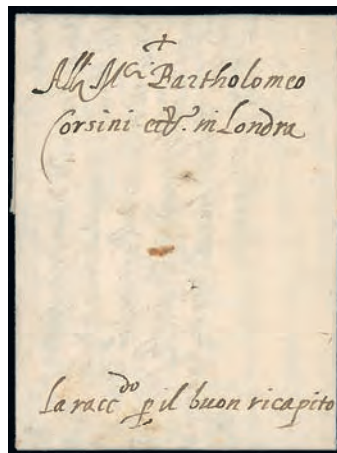 ✝
Alli Mci Bartholomeo
Corsini ect. in Londra
la raccdo p il buon ricapito